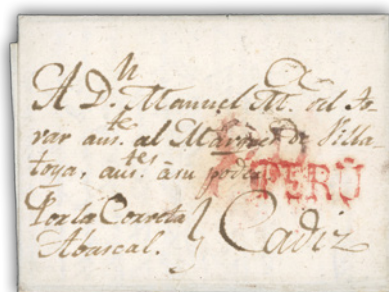 A D.n Manuel M. del To-
var aus.te al Marques de Villa-
toya, aus.tes à su poder
PERÚ
Por la Correta Cadiz
Abascal.